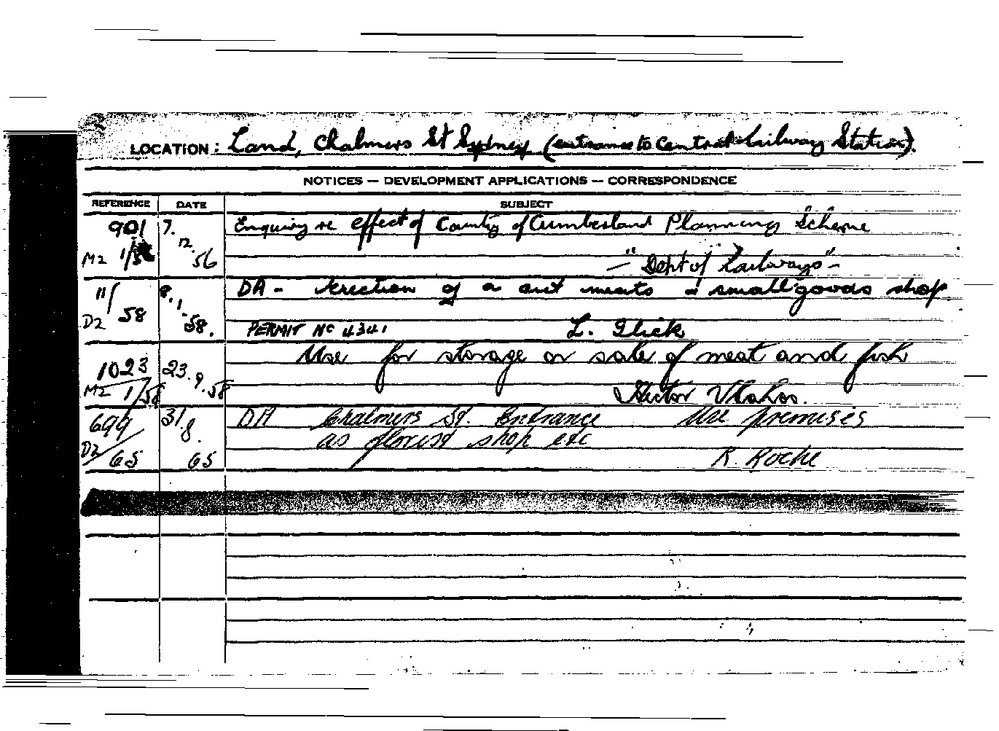 LOCATION: Land, Chalmers St Sydney (entrance to Central Railway Station).
NOTICES — DEVELOPMENT APPLICATIONS — CORRESPONDENCE
REFERENCE DATE SUBJECT
901 7. Enquiry re effect of County of Cumberland Planning Scheme
M2 1/ 12. 56 — "Dept of Railways" —
11/ 8. DA - erection of a cut meats & smallgoods shop.
D2 58 1. 58. PERMIT No 4341 L. Glick
1023 23. Use for storage or sale of meat and fish
M2 1/58 9. 58 Hector Vlahos.
699/ 31. DA Chalmers St. Entrance Use premises
8. as florist shop etc
D2 65 65 R. Roche